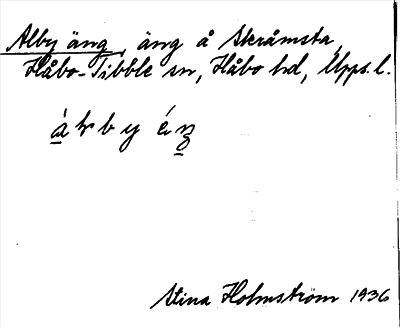 Alby äng, äng å Skråmsta,
Håbo-Tibble sn, Håbo hd, Upps. l.
Stina Holmström 1936